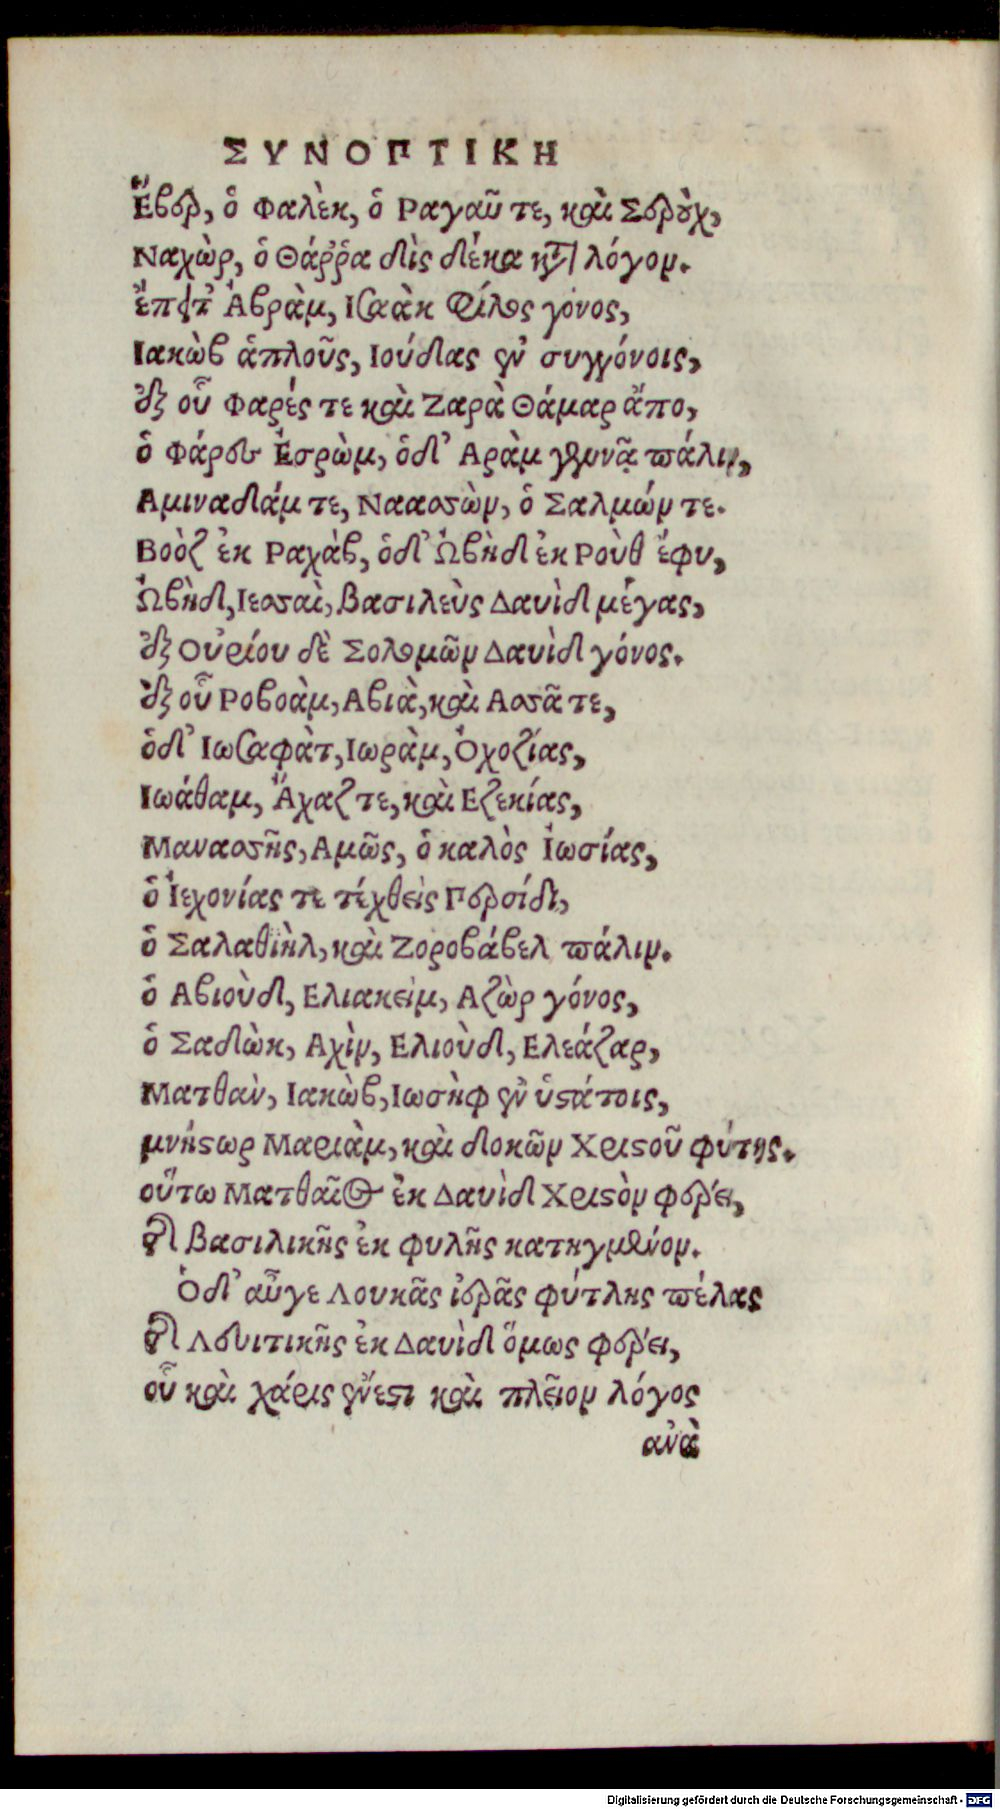 ΣΥΝΟΠΤΙΚΗ
Ἔβερ, ὁ Φαλὲκ, ὁ Ραγαῦ τε, καὶ Σερὺχ,
Ναχὼρ, ὁ Θάῤῥα δὶς δέκα κτ λόγον.
Ἀβρὰμ, Ισαὰκ φίλος γόνος,
Ιακὼβ ἁπλοῦς, Ιούδας ἐν συγγόνοις,
ἐξ οὗ Φαρές τε καὶ Ζαρὰ Θάμαρ ἄπο,
ὁ Φάρες Ἐσρὼμ, ὁδ' Αρὰμ γεννᾷ πάλιν,
Αμιναδάμ τε, Ναασσὼν, ὁ Σαλμών τε.
Βοὸζ ἐκ Ραχὰβ, ὁδ' Ὠβὴδ ἐκ Ροὺθ ἔφυ,
Ὠβὴδ, Ιεσσαὶ, βασιλεὺς Δαυὶδ μέγας,
ἐξ Οὐρίου δὲ Σολομῶν Δαυὶδ γόνος.
ἐξ οὗ Ροβοὰμ, Αβιὰ, καὶ Ασσᾶ τε,
ὁδ' Ιωσαφὰτ, Ιωρὰμ, Ὀχοζίας,
Ιωάθαμ, Ἄχαζ τε, καὶ Εζεκίας,
Μανασσῆς, Αμῶς, ὁ καλὸς Ἰωσίας,
ὁ Ἰεχονίας τε τέχθεὶς Περσίδι,
ὁ Σαλαθιὴλ, καὶ Ζοροβάβελ πάλιν.
ὁ Αβιοὺδ, Ελιακεὶμ, Αζὼρ γόνος,
ὁ Σαδὼκ, Αχὶμ, Ελιοὺδ, Ελεάζαρ,
Ματθαὺ, Ιακὼβ, Ιωσὴφ ἐν ὑστάτοις,
μνήστωρ Μαριὰμ, καὶ δοκῶν Χριστοῦ φύτης.
οὕτω Ματθαῖος ἐκ Δαυὶδ Χριστὸν φέρει,
βασιλικῆς ἐκ φυλῆς κατηγμένον.
Ὁδ' αὖγε Λουκᾶς ἱερᾶς φύτλης πέλας
Λευιτικῆς ἐκ Δαυὶδ ὅμως φέρει,
οὗ καὶ χάρις ἔνεστι καὶ πλεῖον λόγος
ανὰ
Digitalisierung gefördert durch die Deutsche Forschungsgemeinschaft - DFG